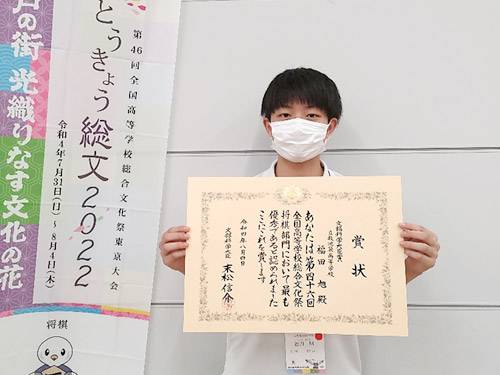 戸の街 光織りなす文化の花
とうきょう総文2022
第46回全国高等学校総合文化祭東京大会
令和4年7月31日(日)~8月4日(木)
将棋
賞状
文部科学大臣賞
高等学校
福田 旭 殿
あなたは第四十六回
全国高等学校総合文化祭
将棋部門において最も
優秀であると認められました
ここにこれを賞します
令和四年八月
文部科学大臣
末松信介